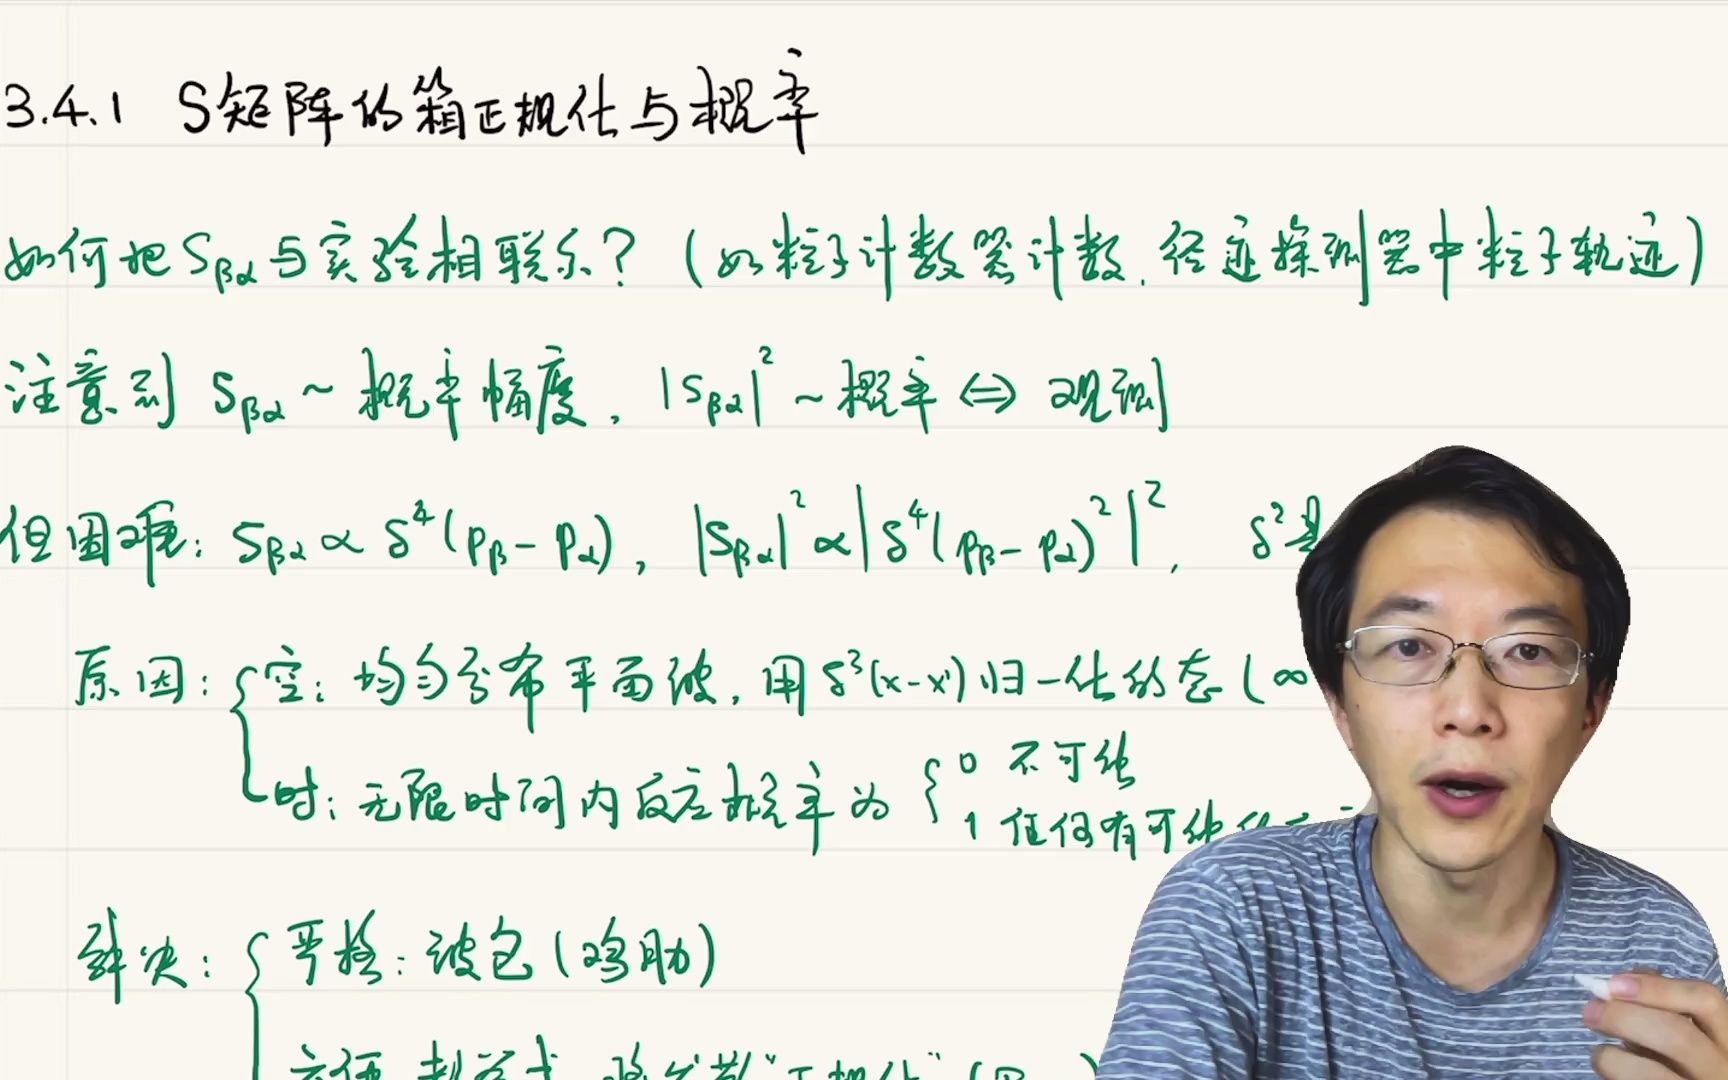 3.4.1 S矩阵的箱正规化与概率
如何把 Sβα 与实验相联系？（如粒子计数器计数，径迹探测器中粒子轨迹）
注意到 Sβα ~ 概率幅度，|Sβα|² ~ 概率 ⇔ 观测
但困难：Sβα ∝ δ⁴(pβ - pα)，|Sβα|² ∝ |δ⁴(pβ - pα)²|²，δ²是
原因：{ 空：均匀分布平面波，用 δ³(x-x') 归一化的态（∞
时：无限时间内反应概率为 { 0 不可能
1 任何有可能
解决：{ 严格：波包（鸡肋）